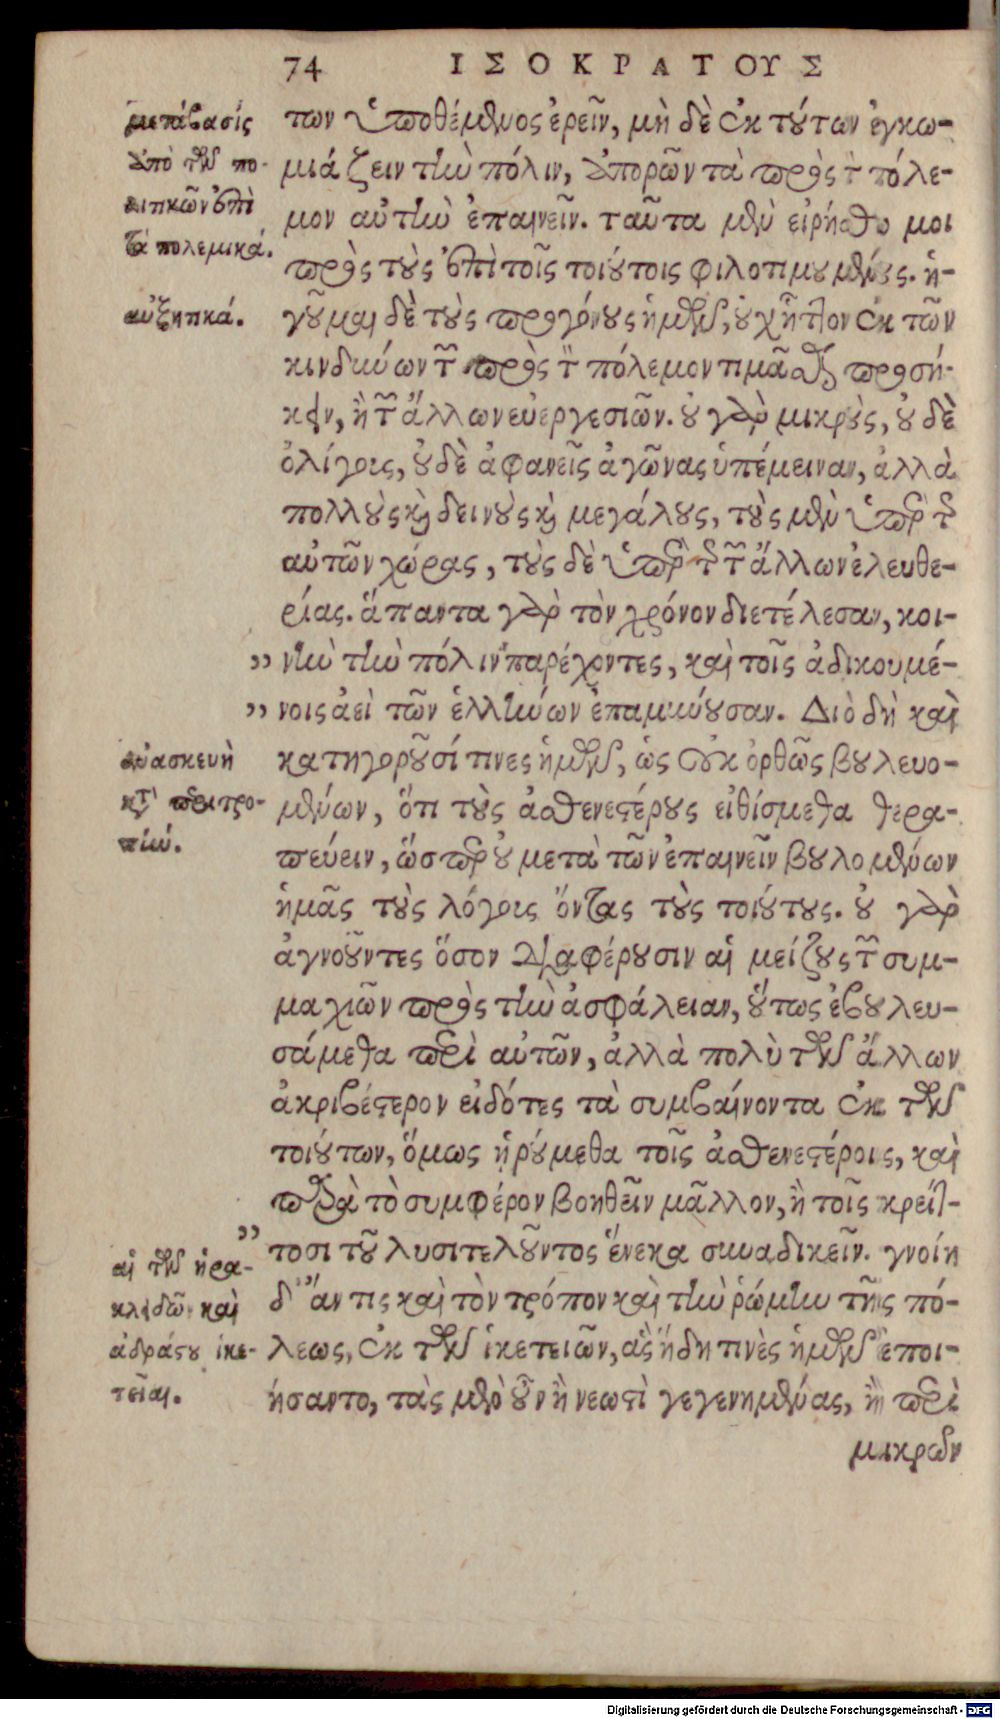 74 ΙΣΟΚΡΑΤΟΥΣ
μετάβασις
ἀπὸ τῶν πο-
λιτικῶν ἐπὶ
τὰ πολεμικά.
αὐξητικά.
των ὑποθέμενος ἐρεῖν, μὴ δὲ ἐκ τούτων ἐγκω-
μιάζειν τὴν πόλιν, ἀπορῶν τὰ πρὸς τὸν πόλε-
μον αὐτὴν ἐπαινεῖν. ταῦτα μὲν εἰρήσθω μοι
πρὸς τοὺς ἐπὶ τοῖς τοιούτοις φιλοτιμουμένους. ἡ-
γοῦμαι δὲ τοὺς προγόνους ἡμῶν, οὐχ ἧττον ἐκ τῶν
κινδύνων τῶν πρὸς τὸν πόλεμον τιμᾶσθαι προσή-
κειν, ἢ τῶν ἄλλων εὐεργεσιῶν. οὐ γὰρ μικροὺς, οὐδὲ
ὀλίγους, οὐδὲ ἀφανεῖς ἀγῶνας ὑπέμειναν, ἀλλὰ
πολλοὺς καὶ δεινοὺς καὶ μεγάλους, τοὺς μὲν ὑπὲρ τῆς
αὑτῶν χώρας, τοὺς δὲ ὑπὲρ τῆς τῶν ἄλλων ἐλευθε-
ρίας. ἅπαντα γὰρ τὸν χρόνον διετέλεσαν, κοι-
„ νὴν τὴν πόλιν παρέχοντες, καὶ τοῖς ἀδικουμέ-
„ νοις ἀεὶ τῶν ἑλλήνων ἐπαμύνουσαν. Διὸ δὴ καὶ
ἀνασκευὴ
κατὰ περιτρο-
πήν.
κατηγοροῦσί τινες ἡμῶν, ὡς οὐκ ὀρθῶς βουλευο-
μένων, ὅτι τοὺς ἀσθενεστέρους εἰθίσμεθα θερα-
πεύειν, ὥσπερ οὐ μετὰ τῶν ἐπαινεῖν βουλομένων
ἡμᾶς τοὺς λόγους ὄντας τοὺς τοιούτους. οὐ γὰρ
ἀγνοοῦντες ὅσον διαφέρουσιν αἱ μείζους τῶν συμ-
μαχιῶν πρὸς τὴν ἀσφάλειαν, οὕτως ἐβουλευ-
σάμεθα περὶ αὐτῶν, ἀλλὰ πολὺ τῶν ἄλλων
ἀκριβέστερον εἰδότες τὰ συμβαίνοντα ἐκ τῶν
τοιούτων, ὅμως ᾑρούμεθα τοῖς ἀσθενεστέροις, καὶ
παρὰ τὸ συμφέρον βοηθεῖν μᾶλλον, ἢ τοῖς κρείτ-
„ τοσι τοῦ λυσιτελοῦντος ἕνεκα συναδικεῖν. γνοίη
αἱ τῶν ἡρα-
κλειδῶν καὶ
ἀδράστου ἱκε-
τεῖαι.
δ' ἄν τις καὶ τὸν τρόπον καὶ τὴν ῥώμην τῆς πό-
λεως, ἐκ τῶν ἱκετειῶν, ἃς ἤδη τινὲς ἡμῶν ἐποι-
ήσαντο, τὰς μὲν οὖν ἢ νεωστὶ γεγενημένας, ἢ περὶ
μικρῶν
Digitalisierung gefördert durch die Deutsche Forschungsgemeinschaft - DFG